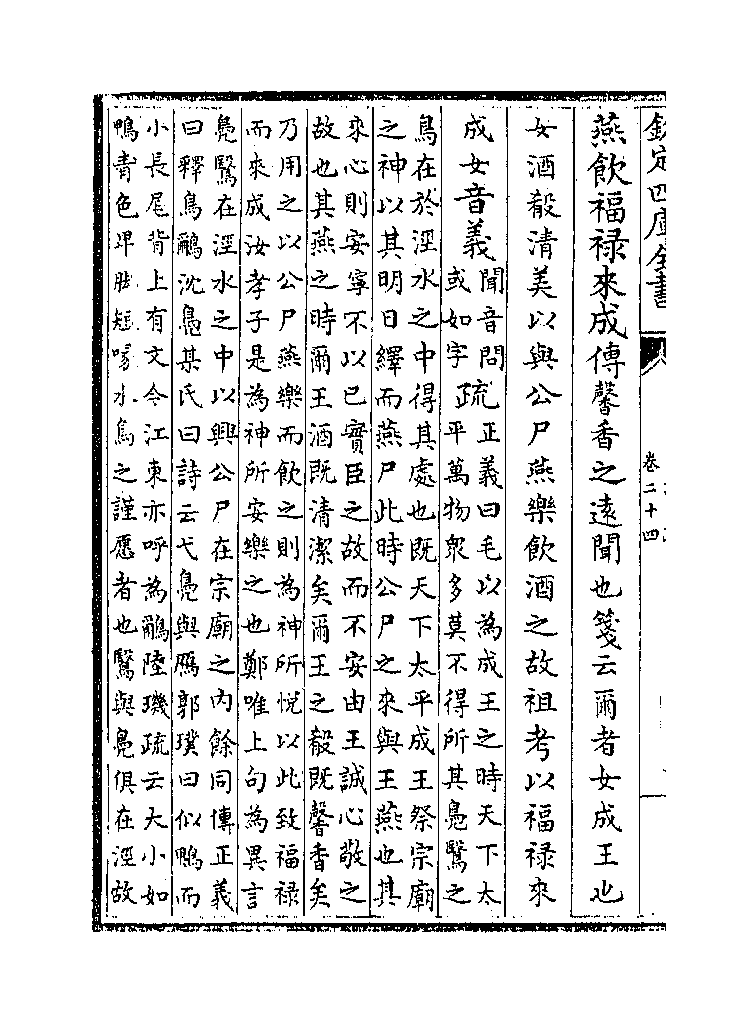 欽定四庫全書
卷二十四
燕飲福祿來成傳馨香之遠聞也箋云爾者女成王也
女酒殽清美以與公尸燕樂飲酒之故祖考以福祿來
成女音義聞音問
或如字
疏正義曰毛以為成王之時天下太
平萬物衆多莫不得所其鳧鷖之
鳥在於涇水之中得其處也既天下太平成王祭宗廟
之神以其明日繹而燕尸此時公尸之來與王燕也其
來心則安寧不以已實臣之故而不安由王誠心敬之
故也其燕之時爾王酒既清潔矣爾王之殽既馨香矣
乃用之以公尸燕樂而飲之則為神所悅以此致福祿
而來成汝孝子是為神所安樂之也鄭唯上句為異言
鳧鷖在涇水之中以興公尸在宗廟之内餘同傳正義
曰釋鳥鸍沈鳧某氏曰詩云弋鳧與鴈郭璞曰似鴨而
小長尾背上有文今江東亦呼為鸍陸璣疏云大小如
鴨青色卑脚短喙水鳥之謹愿者也鷖與鳧俱在涇故